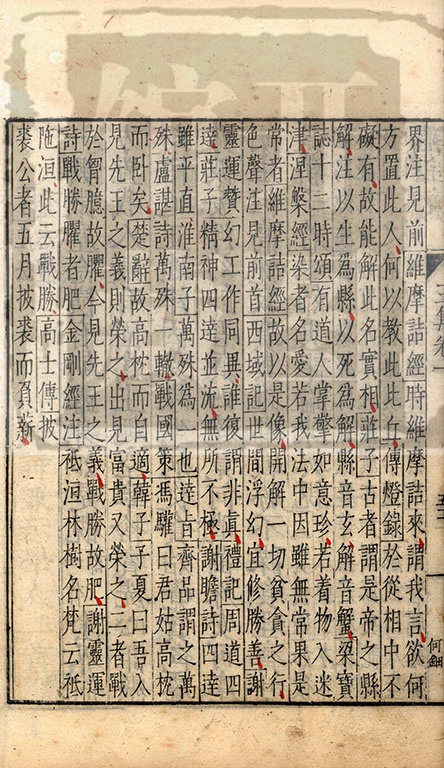 界注見前維摩詰經時維摩詰來謂我言欲何
方置此人何以教此比丘傳燈錄於從相中不
礙有故能解此名實相莊子古者謂是帝之縣
解注以生為縣以死為解縣音玄解音蟹梁寶
誌十二時頌有道人掌擎如意珍若着物入迷
津涅槃經染者名愛若我法中因雖無常果是
常者維摩詰經故以是像開解一切貧貪之行
色聲注見前首西域記世間浮幻宜修勝善謝
靈運贊幻工作同異誰復謂非真禮記周道四
達莊子精神四達並流無所不極謝瞻詩四達
雖平直淮南子萬殊為一也達旨齊品謂之萬
殊盧諶詩萬殊一轍戰國策馮驩曰君姑高枕
而卧矣楚辭故高枕而自適韓子子夏曰吾入
見先王之義則榮之出見富貴又榮之二者戰
於胷臆故臞今見先王之義戰勝故肥謝靈運
詩戰勝臞者肥金剛經注祗洹林樹名梵云祗
陁洹此云戰勝高士傳披
裘公者五月披裘而負薪